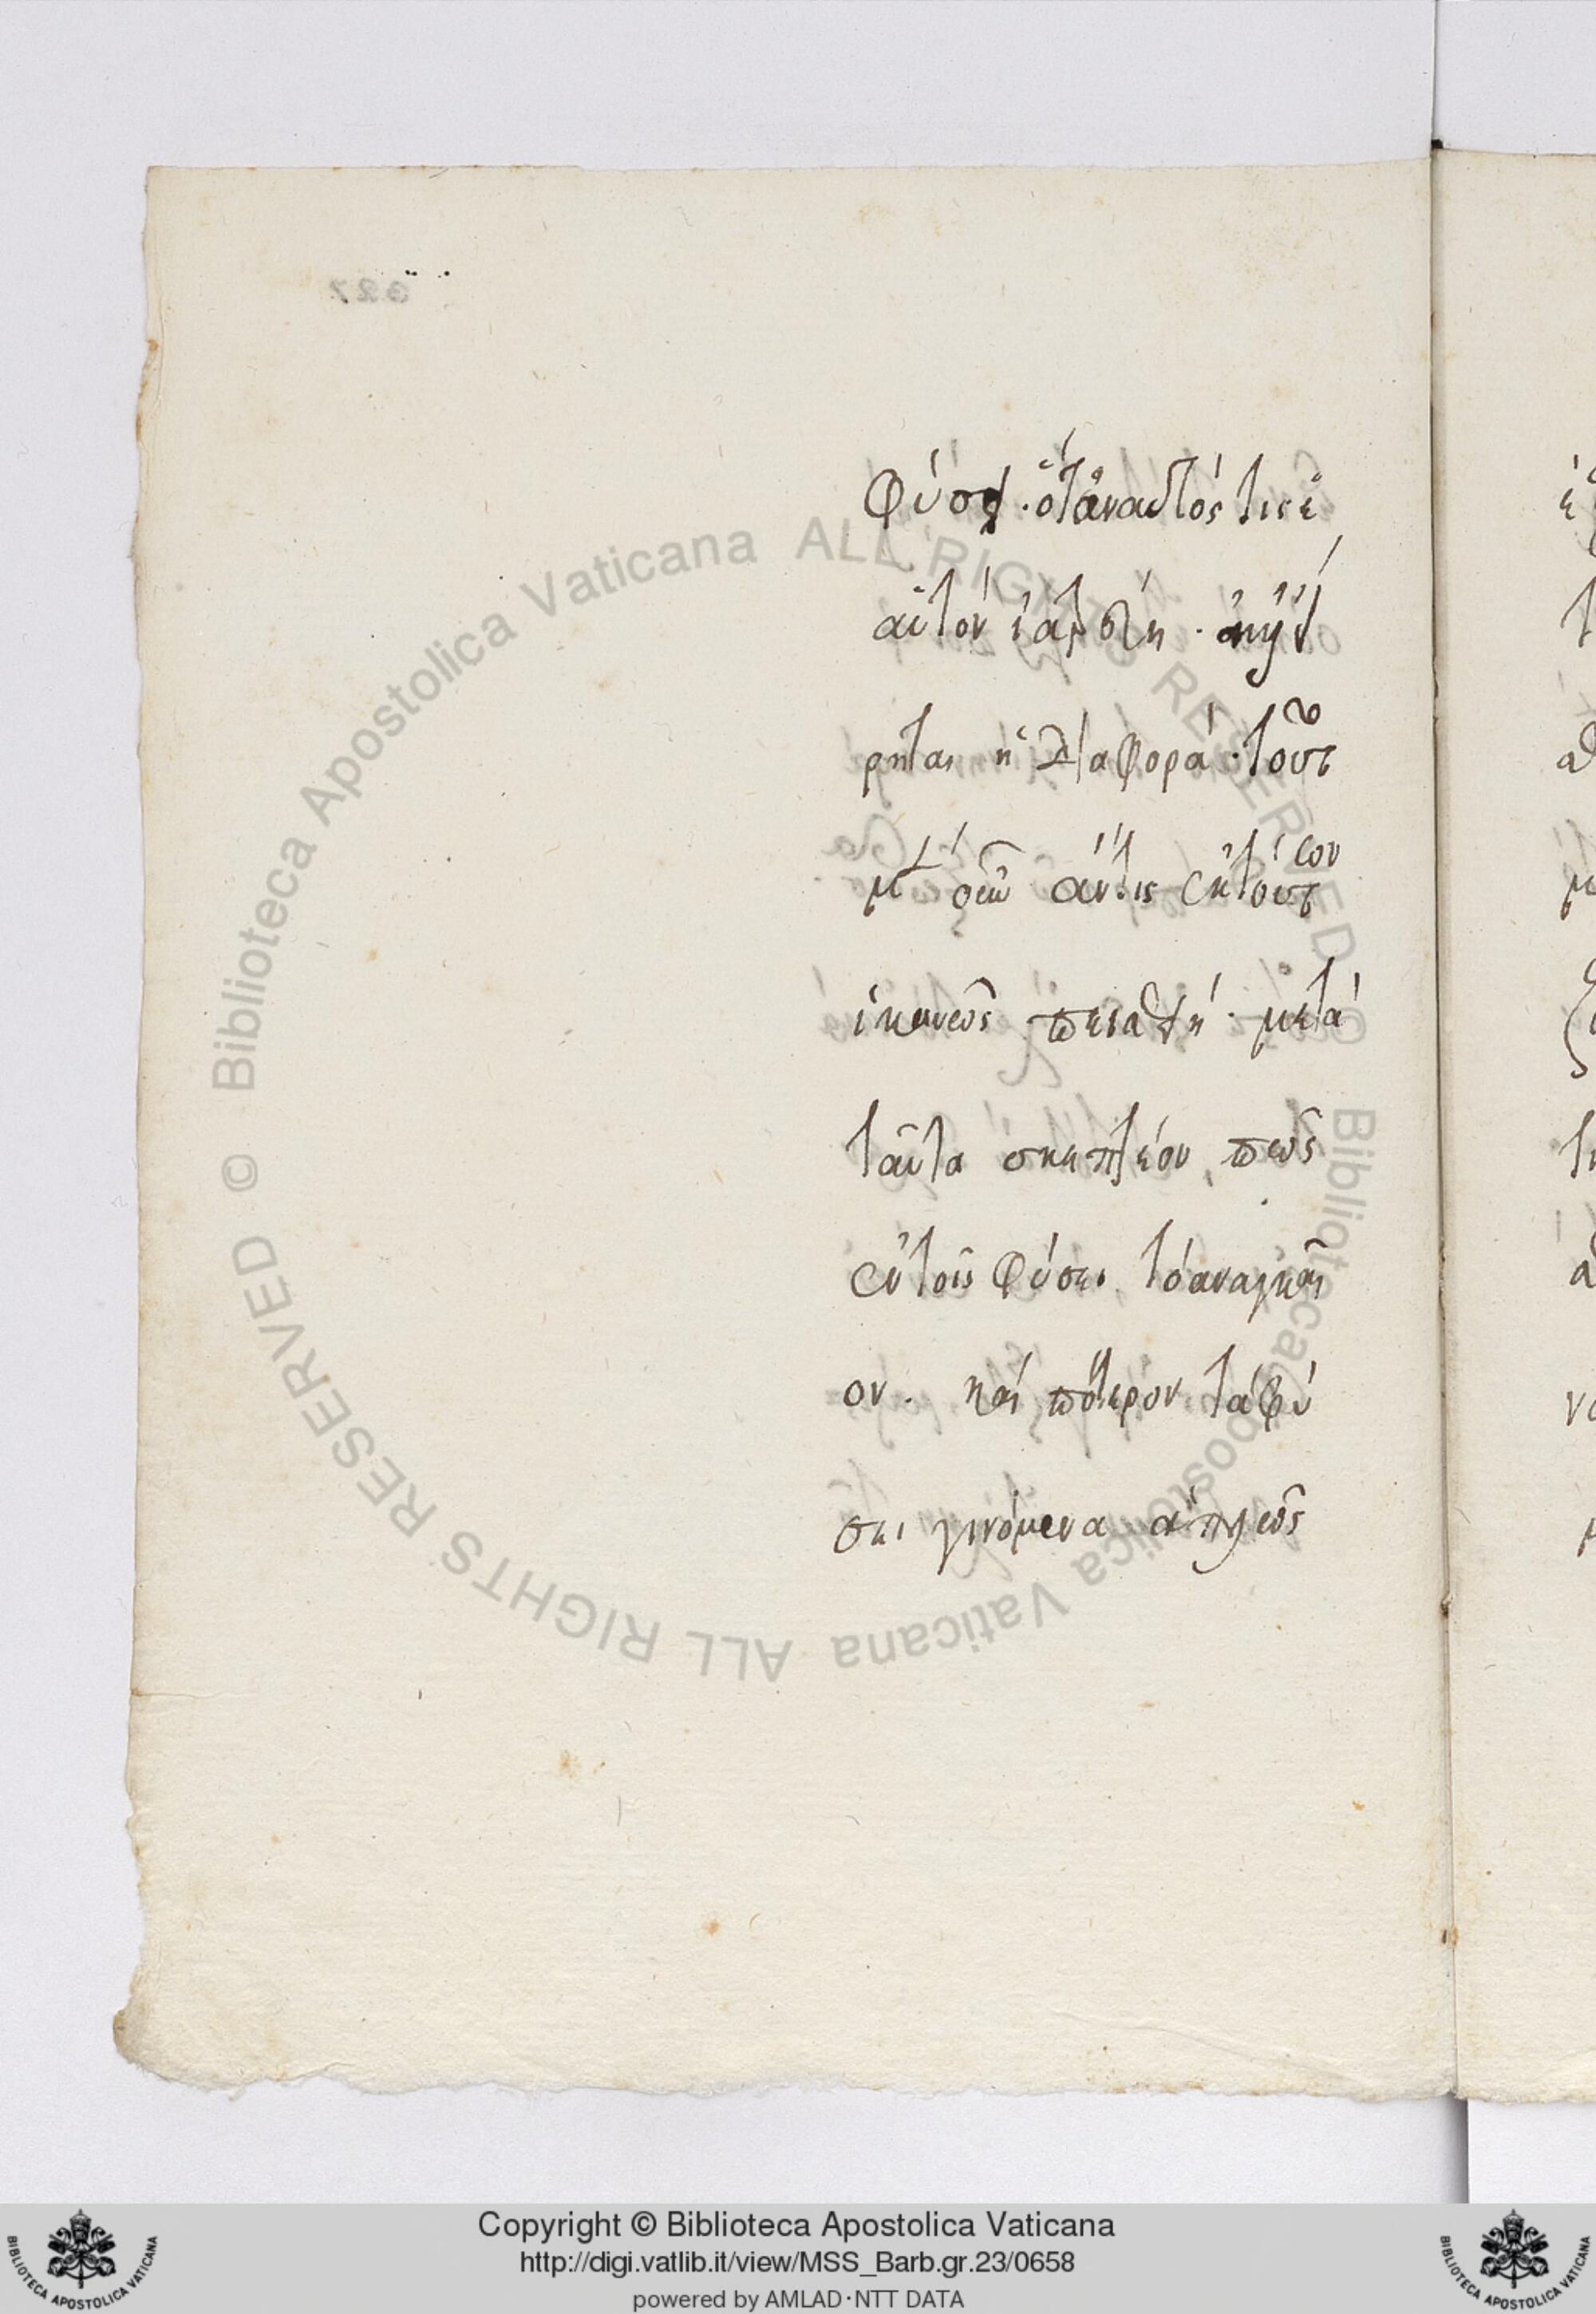 φύσις· ὅταν αὐτός τις ἑ
αυτὸν ἰατρεύῃ· εἴρη
ρηται ἡ διαφορά· τούτου
μὲν οὖν ἄν τις ἐκ τούτων
ἱκανῶς πεισθῇ· μετὰ
ταῦτα σκεπτέον πῶς
ἐν τοῖς φύσει τὸ ἀναγκαῖ
ον. καὶ πότερον τὰ φύ
σει γινόμενα ἁπλῶς
327
Biblioteca Apostolica Vaticana ALL RIGHTS RESERVED © Biblioteca Apostolica Vaticana ALL RIGHTS RESERVED ©
Copyright © Biblioteca Apostolica Vaticana
http://digi.vatlib.it/view/MSS_Barb.gr.23/0658
powered by AMLAD·NTT DATA
BIBLIOTECA APOSTOLICA VATICANA
BIBLIOTECA APOSTOLICA VATICANA